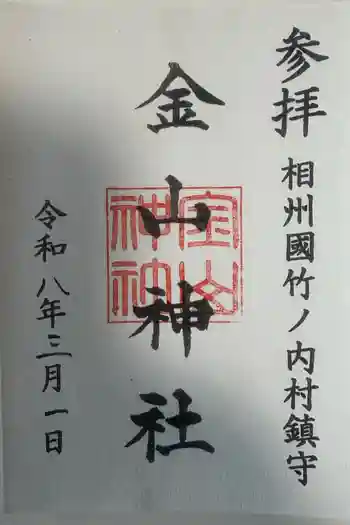 参拝
相州國竹ノ内村鎮守
金山神社
金山神社
令和八年三月一日